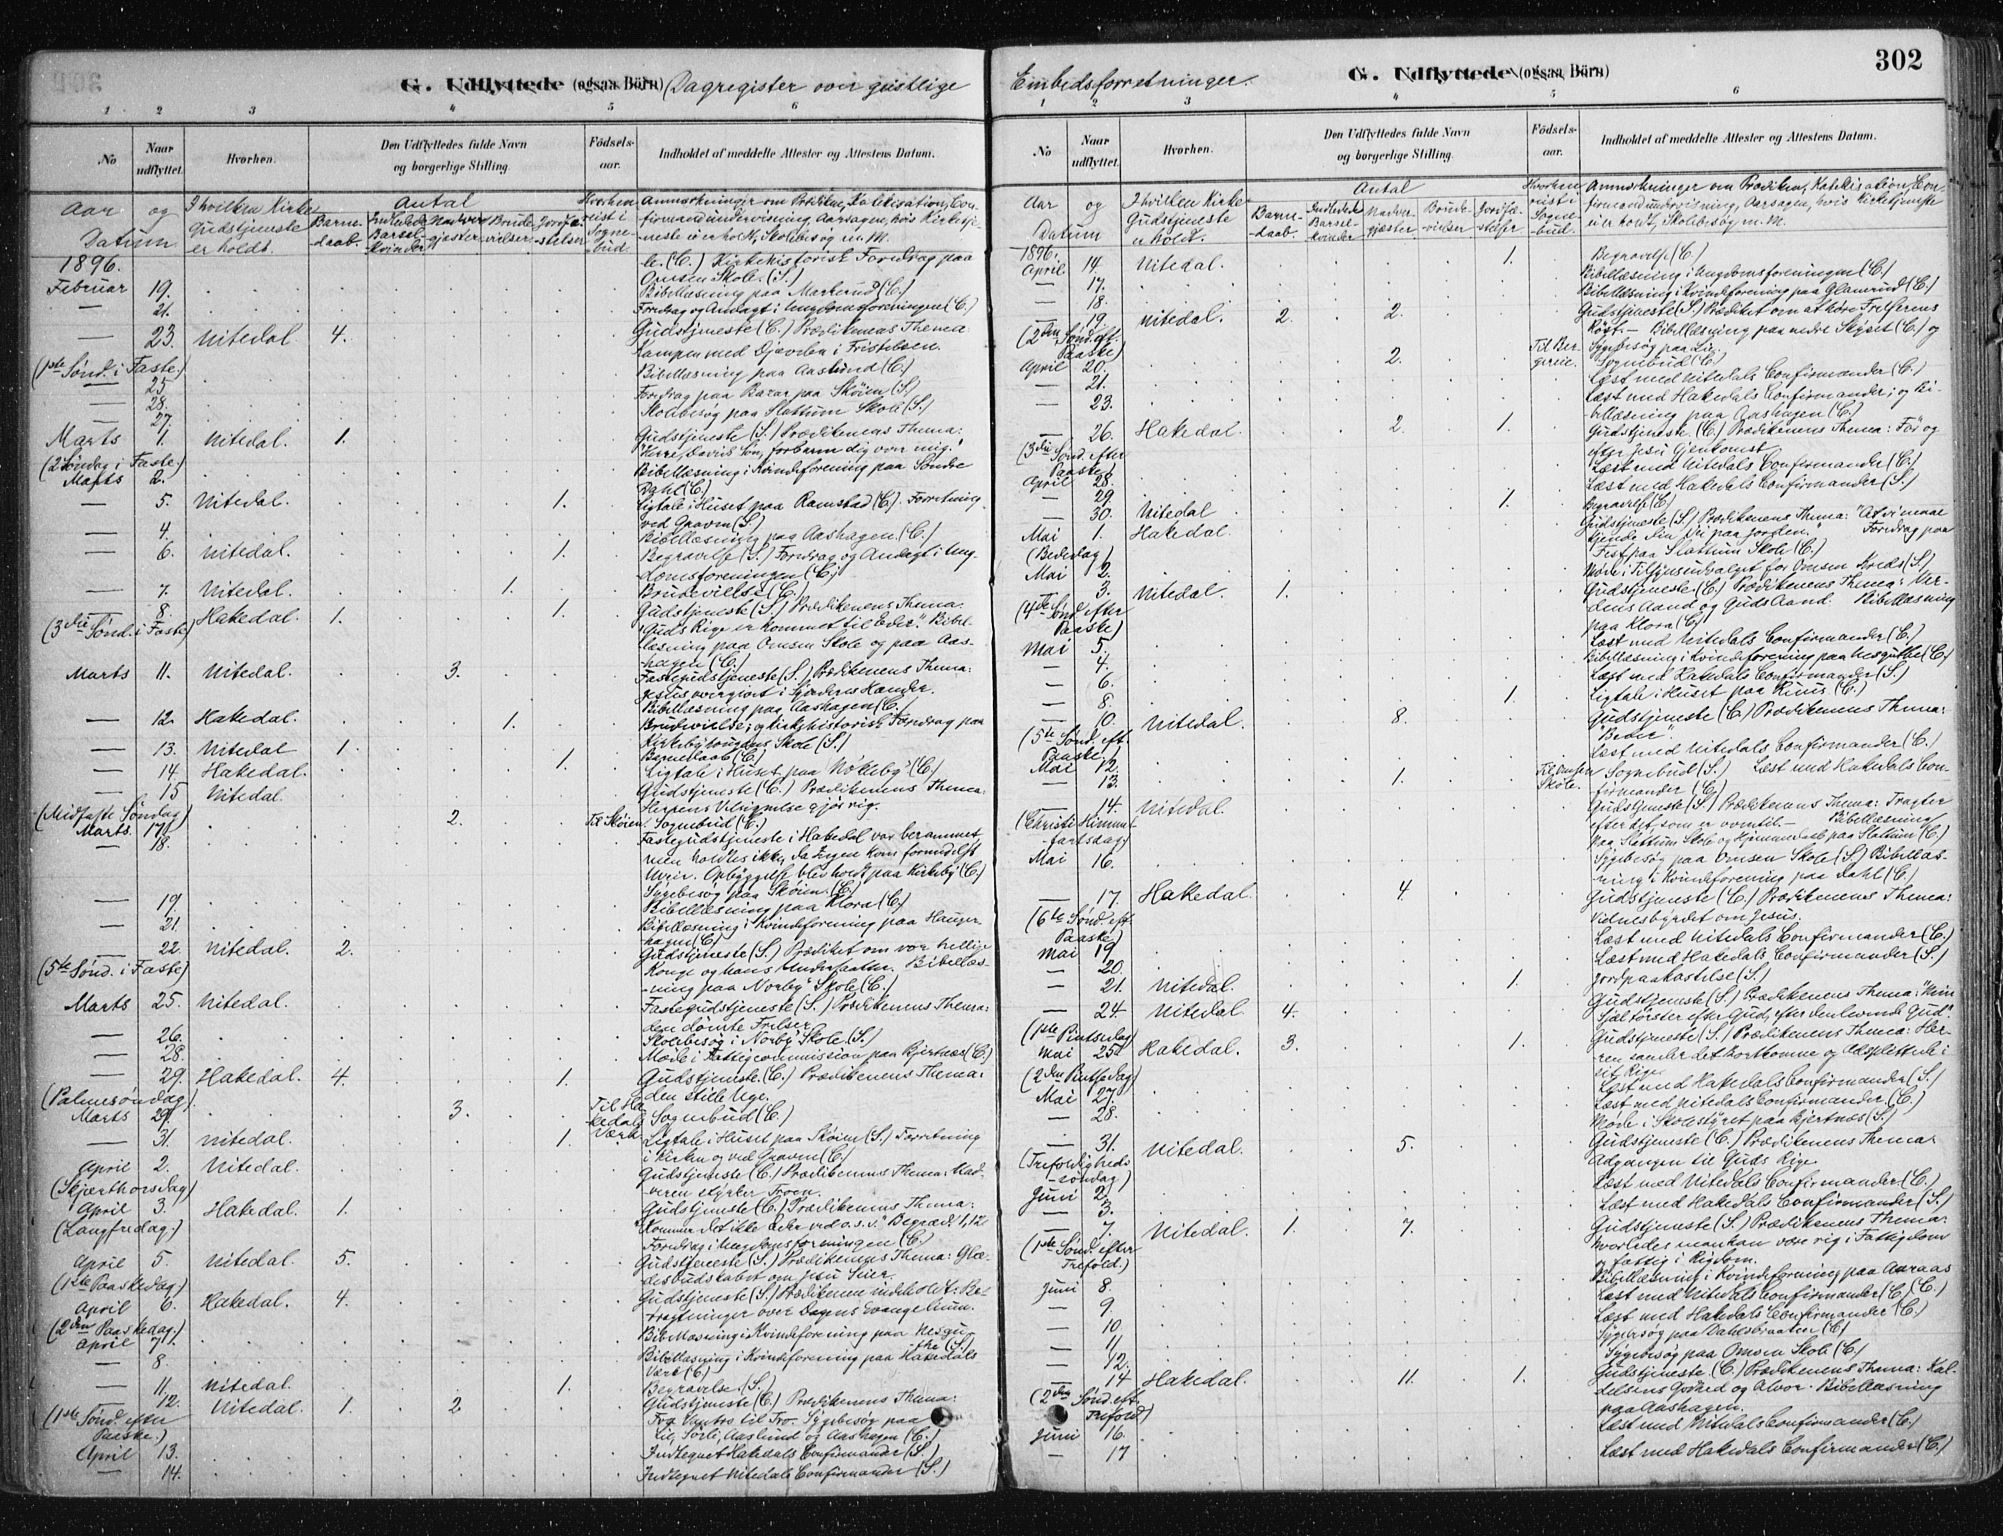 302
G. Udflyttede (ogsaa Börn) Dagregister over geistlige
1 2 3 4 5 6
No Naar udflyttet. Hvorhen. Den Udflyttedes fulde Navn og borgerlige Stilling. Fødsels-aar. Indholdet af meddelte Attester og Attestens Datum.
Aar og Datum I hvilken Kirke Gudstjeneste er holdt. Antal Barnedaab. Indledede Barselkvinder. Nadvergjæster Brudevielser. Jordfæstelser. Hvorhen reist i Sognebud. Anmærkninger om Prædiken, Katekisation, Confirmandundervisning, Aarsagen, hvis Kirketjeneste ei er holdt, Skolebesøg m. M.
1896.
le. (C.) Kirkehistorisk Foredrag paa
Februar 19. Omsen Skole. (S.)
Bibellæsning paa Markerud (C.)
— 21. Foredrag og Andagt i Ungdomsforeningen (C.)
— 23. Nitedal 4. Gudstjeneste (C.) Prædikenens Thema:
Kampen med Djævelen i Fristelsen.
(1ste Sønd. i Faste.)
— 25 Bibellæsning paa Aaslund (C.)
— 28. Foredrag paa Bazar paa Skøien (S.)
— 27. Skolebesøg paa Slattum Skole (S.)
Marts 1. Nitedal. 1. Gudstjeneste (S.) Prædikenens Thema:
(2 Søndag i Faste.) "Herre, Davids Søn, forbarm dig over mig."
Marts 2. Bibellæsning i Kvindeforening paa Søndre
Dahl (C.)
— 5. Nitedal. 1. Ligtale i Huset paa Ramstad (C.) Forretning
ved Graven (S.)
— 4. Bibellæsning paa Aashagen (C.)
— 6. Nitedal. 1. Begravelse (S.) Foredrag og Andagt i Ungdomsforeningen (C.)
— 7. Nitedal. 1. Brudevielse (C.)
— 8. Hakedal. 1. 1. Gudstjeneste (S.) Prædikenens Thema:
(3die Sønd. i Faste) "Guds Rige er kommet til Eder." Bibellæsning paa Omsen Skole og paa Aashagen (C.)
Marts 11. Nitedal. 3. Fastegudstjeneste (S.) Prædikenens Thema:
Jesus overgivet i Synderes Hænder.
Bibellæsning paa Aashagen (C.)
— 12. Hakedal. 1. Brudevielse; og kirkehistorisk Foredrag paa
Kirkeby Skole (S.)
— 13. Nitedal 1. Barnedaab (C.)
— 14. Hakedal. 1. Ligtale i Huset paa Nökeby (C.)
— 15 Nitedal. Gudstjeneste (C.) Prædikenens Thema:
(Midfaste Søndag) Herrens Velsignelse gjør rig.
Marts 17. 2. Til Skøien. Sognebud (C.)
— 18. Fastegudstjeneste i Hakedal var berammet
men holdtes ikke, da Ingen kom formedelst
Uveir. Opbyggelse blev holdt paa Kirkeby (C.)
Sygebesøg paa Skøien. (C.)
— 19. Bibellæsning paa Klora (C.)
— 21. Bibellæsning i Kvindeforening paa Haugerhagen (C.)
— 22. Nitedal. 2. Gudstjeneste (S.) Prædiket om vor hellige
(5te Sønd. i Faste) Konge og hans Undersaatter. Bibellæsning paa Norby Skole (C.)
Marts 25. Nitedal. Fastegudstjeneste (S.) Prædikenens Thema:
den dømte Frelser.
— 26. Skolebesøg i Norby Skole (S.)
— 28. Møde i Fattigcommission paa Bjertnæs (C.)
— 29. Hakedal. 4. 1. Gudstjeneste. (C.) Prædikenens Thema:
(Palmesøndag) den stille Uge.
Marts 29. 3. Til Hakedals Værk Sognebud (C.)
— 31. Nitedal. 1. Ligtale i Huset paa Skøien (S.) Forretning
i Kirken og ved Graven (C.)
April 2. Nitedal. Gudstjeneste (C.) Prædikenens Thema: Nadveren styrker Troen.
(Skjærthorsdag)
April 3. Hakedal. 1. Gudstjeneste (C.) Prædikenens Thema:
(Langfredag.) "Kommer det ikke Eder ved o. s. v." Begræd. 1,12.
Foredrag i Ungdomsforeningen (C.)
April 5. Nitedal 5. Gudstjeneste (S.) Prædikenens Thema: Glædesbudskabet om Jesu Seier.
(1ste Paaskedag.)
April 6. Hakedal. 4. Gudstjeneste (S.) Prædikenen indeholdt: Betragtninger over Dagens Evangelium.
(2den Paaskedag.)
April 7. Bibellæsning i Kvindeforening paa Nesguthe (S.)
— 8. Bibellæsning i Kvindeforening paa Hakedals
Værk (C.)
— 11. Nitedal. 1. Begravelse. (S.)
— 12. Nitedal. 1. 2. Gudstjeneste (C.) Prædikenens Thema:
(1ste Sønd. efter Paaske.) Fra Vantro til Tro. Sygebesøg paa
Li, Sørli, Aaslund og Aashagen (C.)
April 13. Indtegnet Hakedals Confirmander (S.)
— 14. Indtegnet Nitedals Confirmander (S.)
Embedsforretninger. G. Udflyttede (ogsaa Börn)
1 2 3 4 5 6
No Naar udflyttet. Hvorhen. Den Udflyttedes fulde Navn og borgerlige Stilling. Fødsels-aar. Indholdet af meddelte Attester og Attestens Datum.
Aar og Datum I hvilken Kirke Gudstjeneste er holdt. Antal Barnedaab. Indledede Barselkvinder Nadvergjæster Brudevielser Jordfæstelser. Hvorhen reist i Sognebud. Anmærkninger om Prædiken, Katekisation, Confirmandundervisning, Aarsagen, hvis Kirketjeneste ei er holdt, Skolebesøg m. M.
1896.
April 14. Nitedal. 1. Begravelse (C.)
— 17. Bibellæsning i Ungdomsforeningen (C.)
— 18. Bibellæsning i Kvindeforening paa Glamerud (C.)
— 19. Nitedal. 2. 2. Gudstjeneste (S.) Prædiket om at høre Frelserens
(2den Sønd. eft. Paaske) Røst. — Bibellæsning paa nedre Skyset (C.) og
Sygebesøg paa Lie.
April 20. 2. Til Bergerine. Sognebud (C.)
— 21. Læst med Nitedals Confirmander (C.)
— 23. Læst med Hakedals Confirmander; og Bibellæsning paa Aashagen (C.)
— 26. Hakedal. 2. 1. Gudstjeneste. (C.) Prædikenens Thema: Før og
(3die Sønd. efter Paaske) efter Jesu Gjenkomst
April 28. Læst med Nitedals Confirmander (C.)
— 29. Læst med Hakedals Confirmander (S.)
— 30. Nitedal 1. Begravelse (C.)
Mai 1. Hakedal. Gudstjeneste (S.) Prædikenens Thema: "At vi maae
(Bededag) kjende din Vei paa Jorden." Foredrag paa
Fest paa Slattum Skole (C.)
Mai 2. Møde i Tilsynsudvalget for Omsen Kreds (S.)
— 3. Nitedal. 1. Gudstjeneste (C.) Prædikenens Thema: Verdens Aand og Guds Aand. Bibellæsning
(4de Sønd. efter Paaske) paa Klora (C.)
Mai 5. Læst med Nitedals Confirmander (C.)
— 4. Bibellæsning i Kvindeforening paa Nesguthe (C.)
— 6. Læst med Hakedals Confirmander (S.)
— 8. 1. Ligtale i Huset paa Riiis (C.)
— 10. Nitedal. 8. Gudstjeneste (C.) Prædikenens Thema:
(5te Sønd. eft. Paaske.) "Beder".
Mai 12. Læst med Nitedals Confirmander (C.)
— 13. 1. Til Omsen Skole. Sognebud (S.) Læst med Hakedals Confirmander (C.)
— 14. Nitedal. Gudstjeneste (S.) Prædikenens Thema: Tragter
(Christi Himmelfartsdag) efter det, som er oventil. — Bibellæsning
paa Slattum Skole og Sygebesøg paa Slattum (C.)
Mai 16. Sygebesøg paa Omsen Skole (S.) Bibellæsning i Kvindeforening paa Dahl (C.)
— 17. Hakedal. 4. Gudstjeneste (C.) Prædikenens Thema:
(6te Sønd. eft. Paaske) Vidnesbyrdet om Jesus.
Mai 19. Læst med Nitedals Confirmander (C.)
— 20. Læst med Hakedals Confirmander (S.)
— 21. Nitedal. 1. Jordpaakastelse (S.)
— 24. Nitedal 4. Gudstjeneste (S.) Prædikenens Thema: "Min
(1ste Pintsedag) Sjæl tørster efter Gud, efter den levende Gud."
Mai 25. Hakedal. 3. 1. Gudstjeneste (S.) Prædikenens Thema: Herren samler det Bortkomne og Adsplittede i
(2den Pintsedag) sit Rige.
Mai 27. Læst med Hakedals Confirmander (S.)
Læst med Nitedals Confirmander. (C.)
— 28. Møde i Skolestyret paa Bjertnæs (S.)
— 31. Nitedal. 5. Gudstjeneste (C.) Prædikenens Thema:
(Trefoldighedssøndag) Adgangen til Guds Rige.
Juni 2. Læst med Nitedals Confirmander (C.)
— 3. Læst med Hakedals Confirmander (S.)
— 7. Nitedal. 1. 7. Gudstjeneste (S.) Prædikenens Thema:
(1ste Sønd. efter Trefold.) hvorledes man kan være rig i Fattigdom
og fattig i Rigdom.
Juni 8. Bibellæsning i Kvindeforening paa Aaraas (C.)
— 9. Læst med Nitedals Confirmander (C.)
— 10. Læst med Hakedals Confirmander (C.)
— 11. Sygebesøg paa Dahlsbraaten (C.)
— 12. Sygebesøg paa Omsen Skole (C.)
— 14 Hakedal. 11. 1. Gudstjeneste. (C.) Prædikenens Thema: Kaldelsens Godhed og Alvor. Bibellæsning
(2den Sønd. eft. Trefold) paa Aashagen.
Juni 16. Læst med Nitedals Confirmander (C.)
— 17 Læst med Hakedals Confirmander (C.)